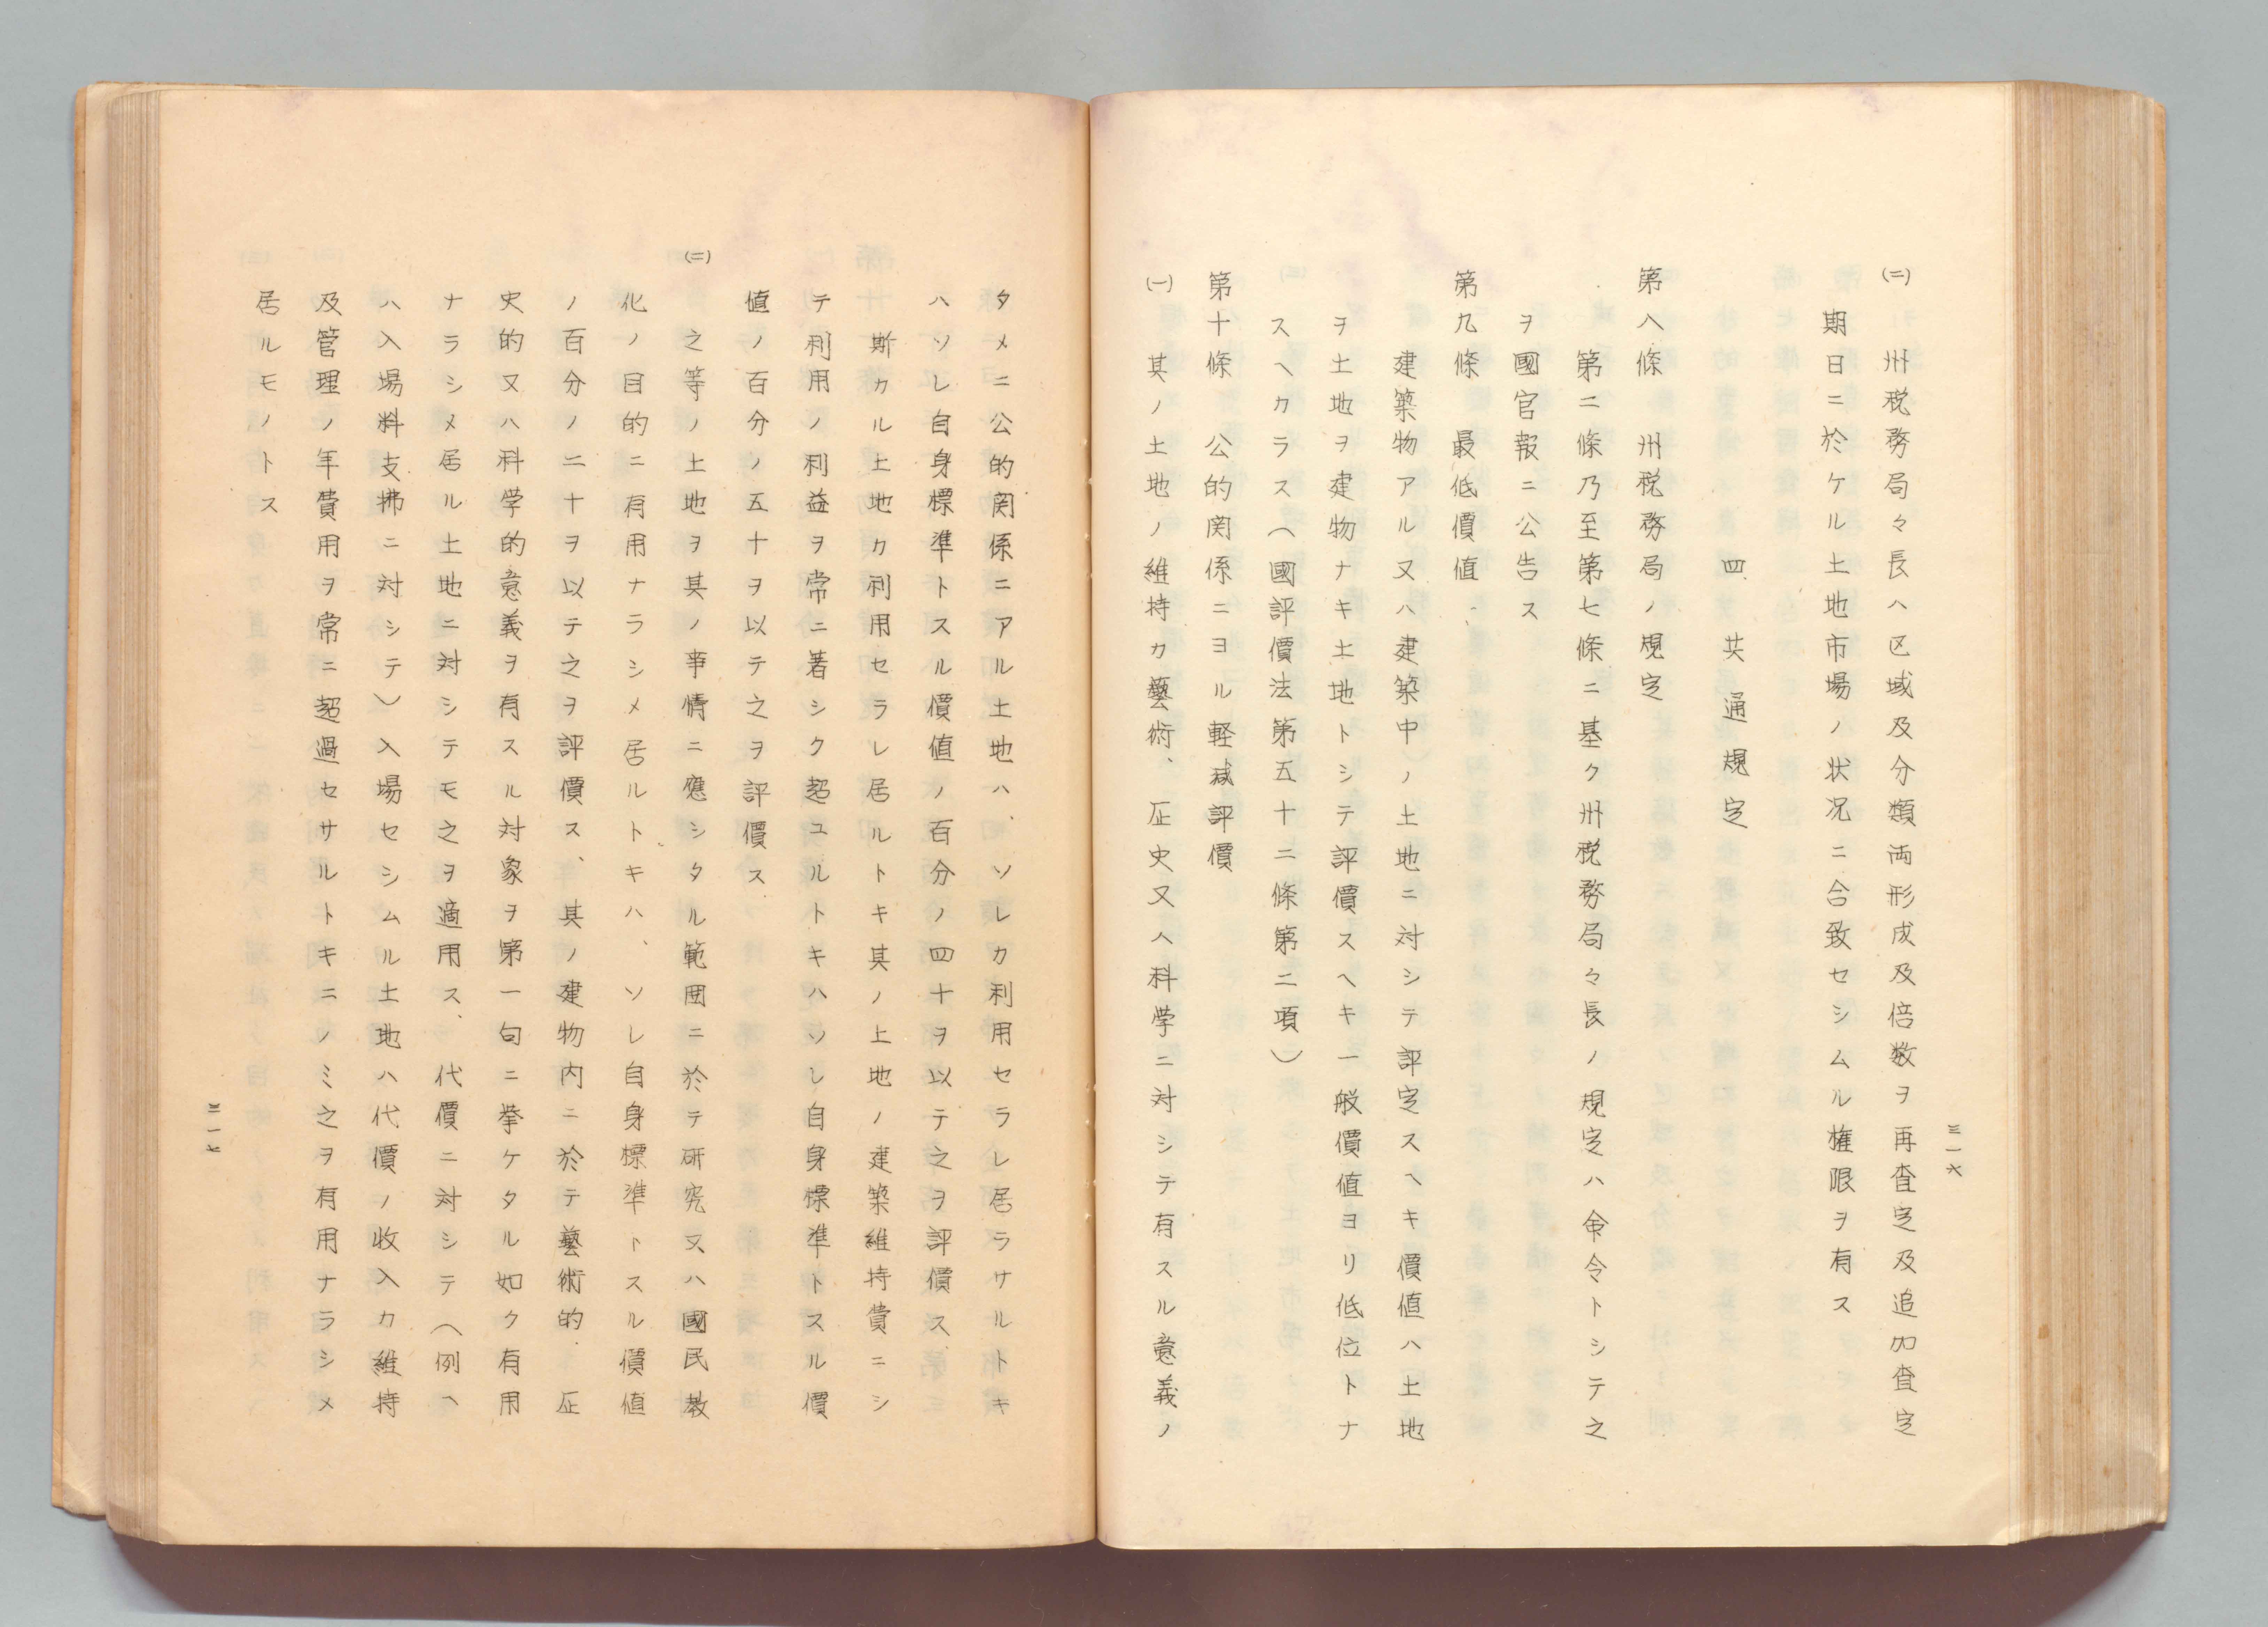 三一六
(二) 州税務局々長ハ区域及分類両形成及倍数ヲ再査定及追加査定
期日ニ於ケル土地市場ノ状况ニ合致セシムル権限ヲ有ス
四、共通規定
第八條 州税務局ノ規定
第二條乃至第七條ニ基ク州税務局々長ノ規定ハ命令トシテ之
ヲ國官報ニ公告ス
第九條 最低價値
建築物アル又ハ建築中ノ土地ニ対シテ評定スヘキ價値ハ土地
ヲ土地ヲ建物ナキ土地トシテ評價スヘキ一般價値ヨリ低位トナ
スヘカラス(國評價法第五十二條第二項)
第十條 公的関係ニヨル軽減評價
(一) 其ノ土地ノ維持カ藝術、歴史又ハ科学ニ対シテ有スル意義ノ
タメニ公的関係ニアル土地ハ、ソレカ利用セラレ居ラサルトキ
ハソレ自身標準トスル價値ノ百分ノ四十ヲ以テ之ヲ評價ス、
斯カル土地カ利用セラレ居ルトキ其ノ上地ノ建築維持費ニシ
テ利用ノ利益ヲ常ニ著シク超ユルトキハソレ自身標準トスル價
値ノ百分ノ五十ヲ以テ之ヲ評價ス
(二) 之等ノ土地ヲ其ノ事情ニ應シタル範囲ニ於テ研究又ハ國民教
化ノ目的ニ有用ナラシメ居ルトキハ、ソレ自身標準トスル價値
ノ百分ノ二十ヲ以テ之ヲ評價ス、其ノ建物内ニ於テ藝術的、歴
史的又ハ科学的意義ヲ有スル対象ヲ第一句ニ挙ケタル如ク有用
ナラシメ居ル土地ニ対シテモ之ヲ適用ス、代價ニ対シテ(例ヘ
ハ入場料支拂ニ対シテ)入場セシムル土地ハ代價ノ收入カ維持
及管理ノ年費用ヲ常ニ超過セサルトキニノミ之ヲ有用ナラシメ
居ルモノトス
三一七